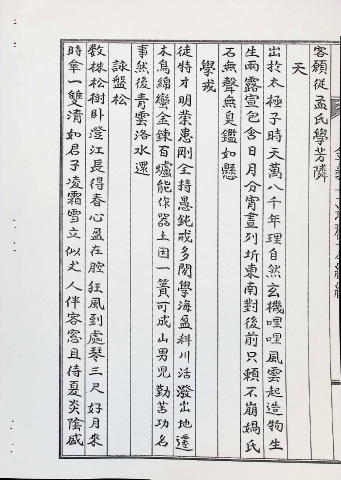 客願従孟氏學芳隣
天
出於太極子時天萬八千年理自然玄機哩哩風雲起造物生
生雨露宣包含日月分宵晝列圻東南對後前只賴不崩媧氏
石無聲無臭鑑如懸
學戒
徒特才明業患剛全持愚鈍戒多閑學海盈科川活潑出地還
木鳥綿蠻金鍊百爐能作器土因一簣可成山男兒勤苦功名
事然後青雲洛水還
詠盤松
數株松樹卧澄江長得春心盈在腔狂風到處琴三尺好月來
時傘一雙清如君子凌霜雪立似丈人伴客窓且待夏炎陰盛